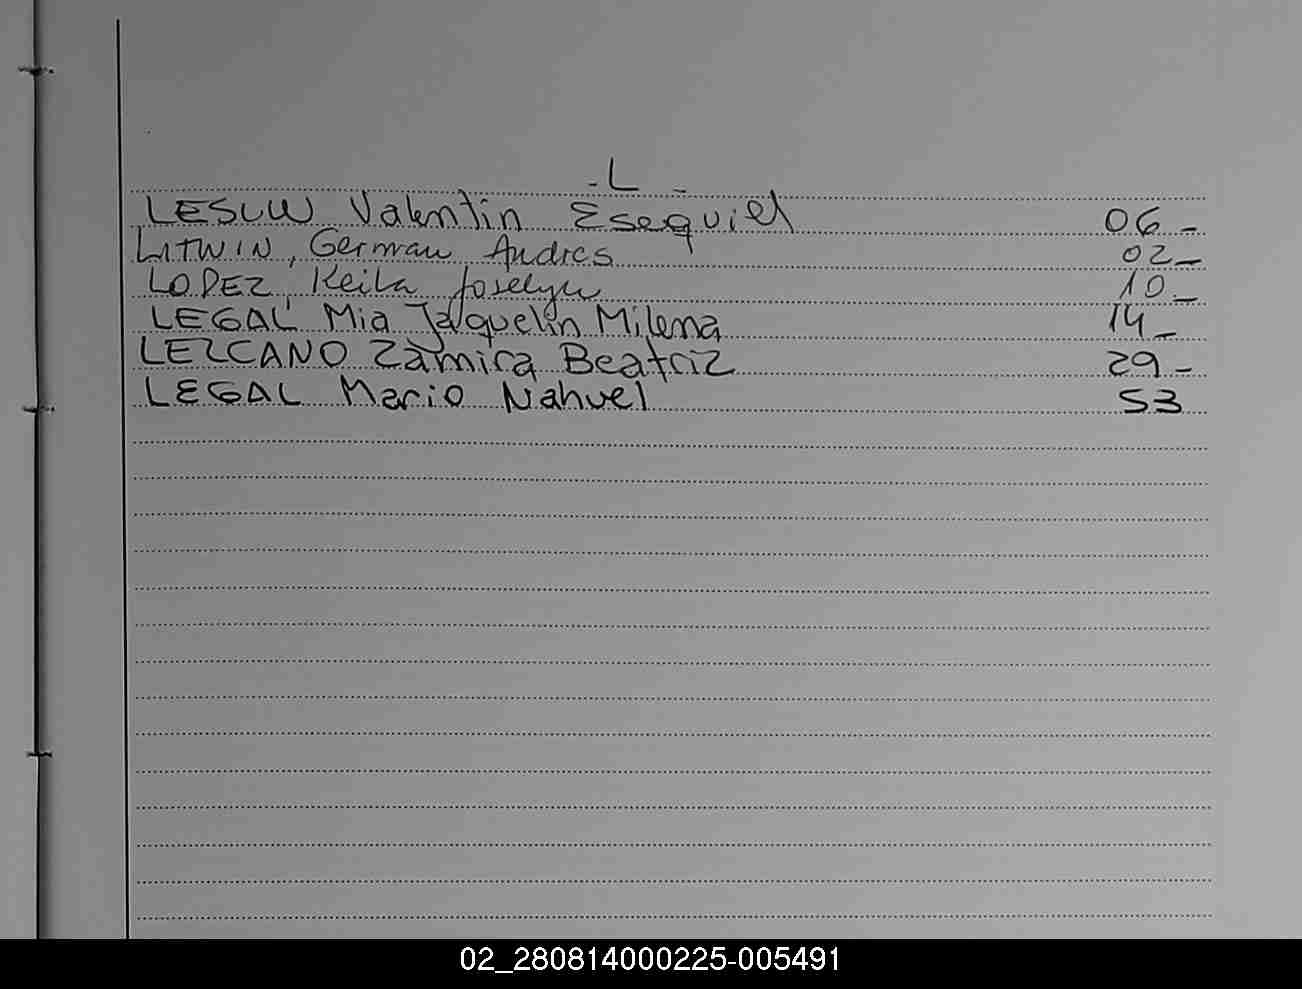 - L -
LESLIW Valentin Esequiel 06 -
LITWIN, German Andres 02 -
LOPEZ, Keila Joselyn 10 -
LEGAL Mia Jaquelin Milena 14 -
LEZCANO Zamira Beatriz 29 -
LEGAL Mario Nahuel 53
02_280814000225-005491